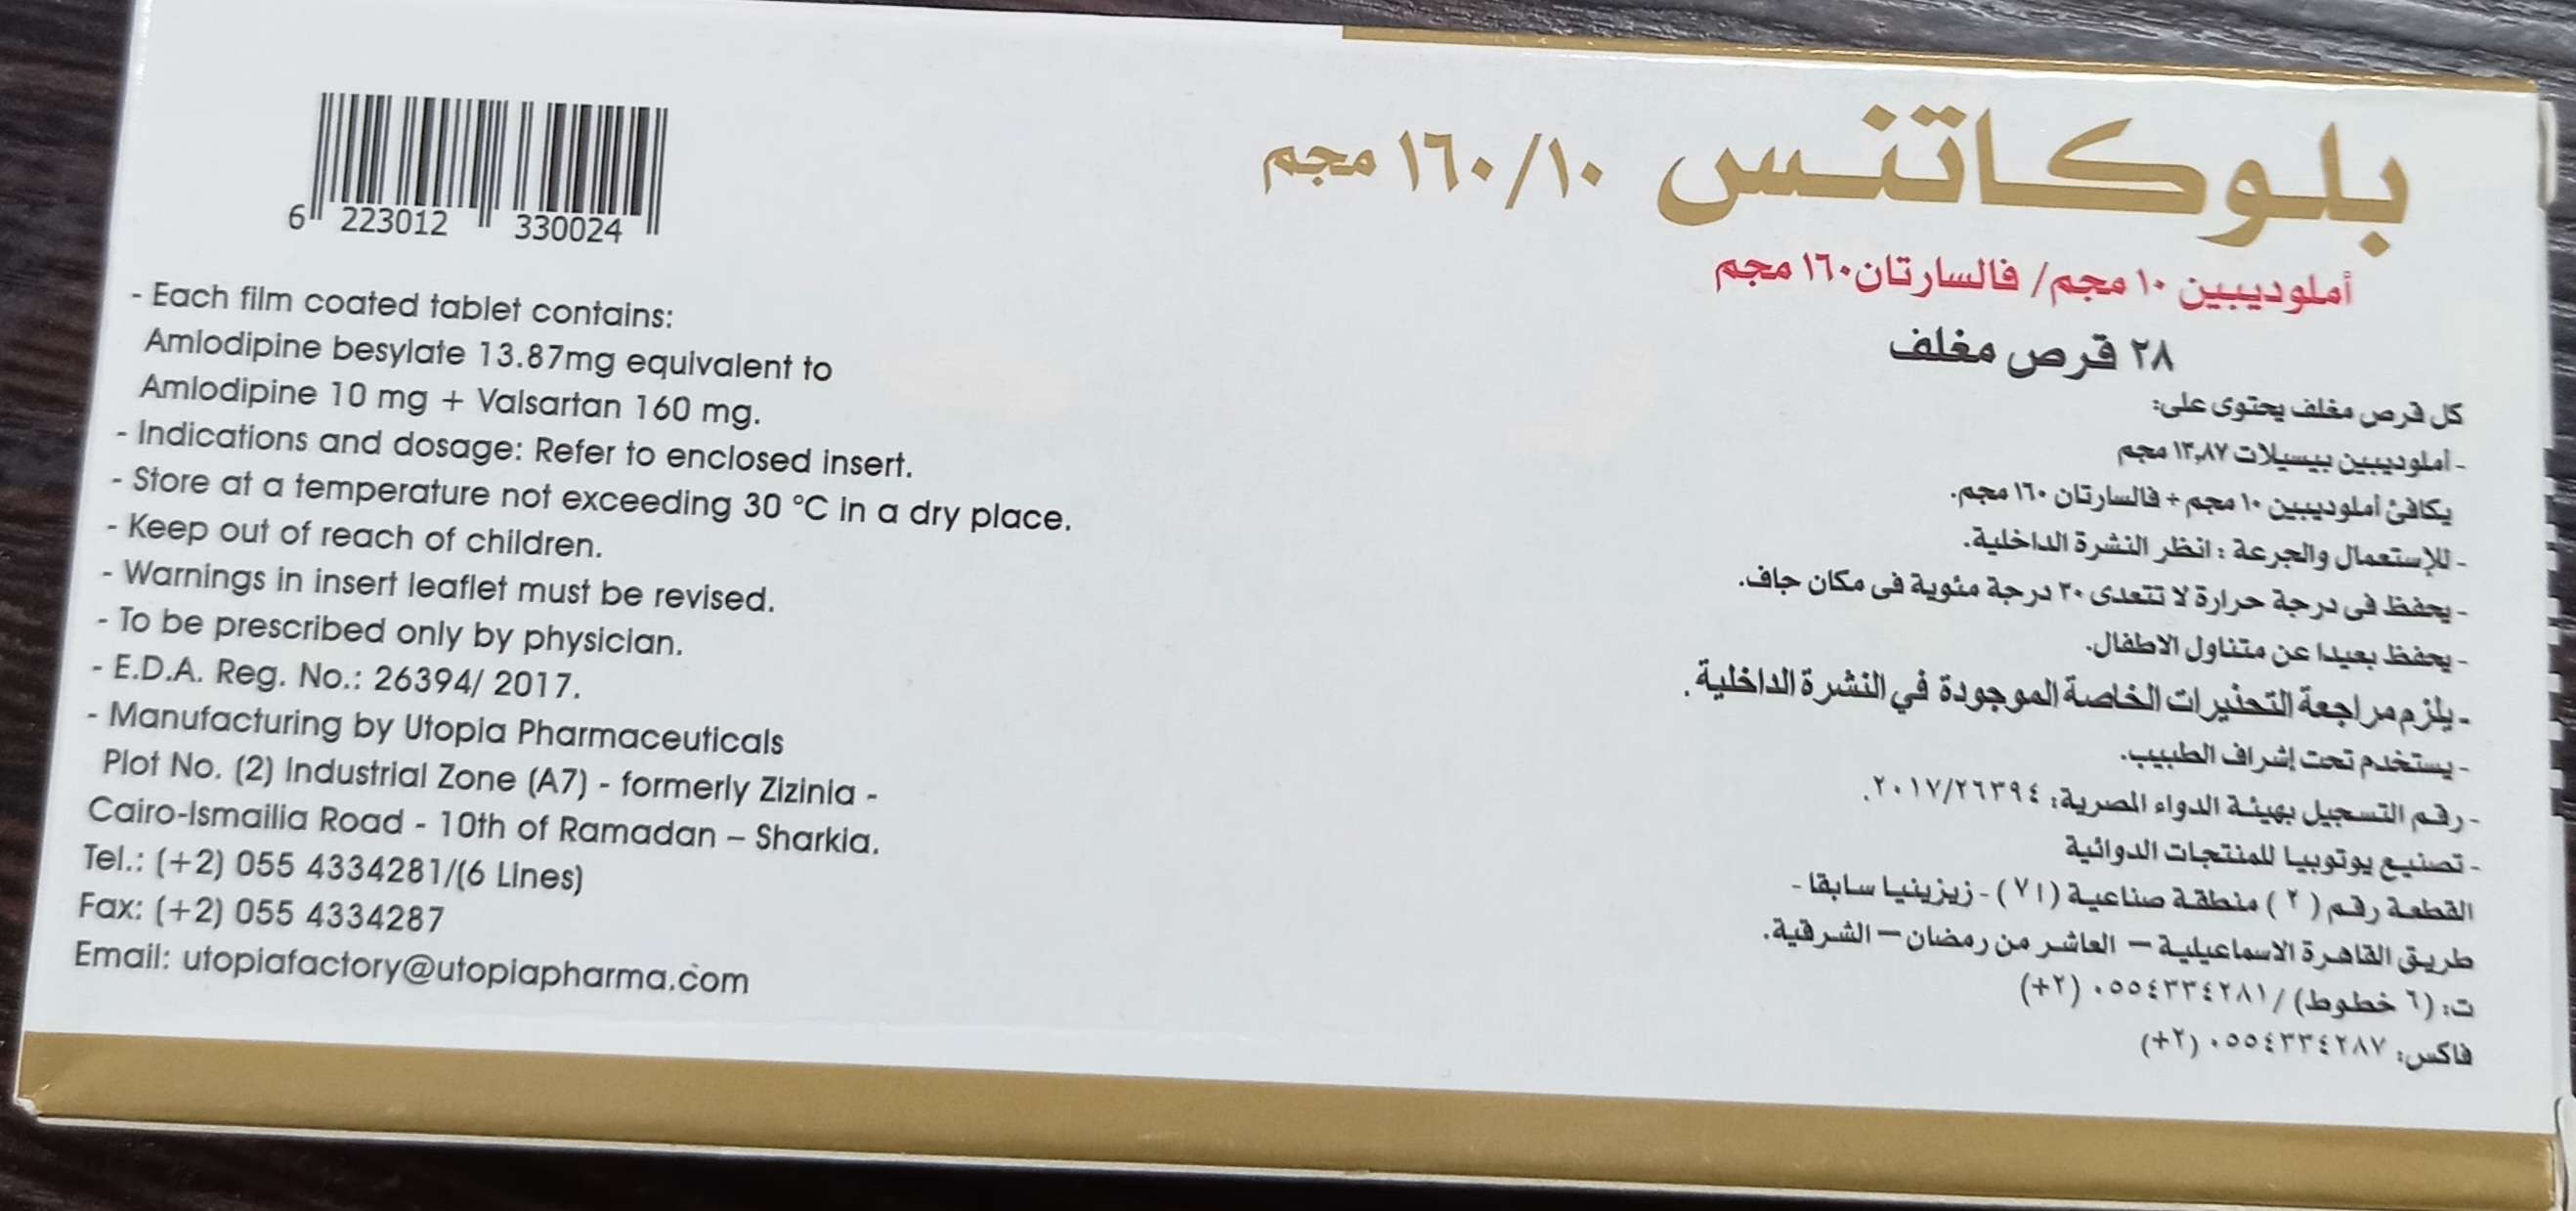 6 223012 330024
- Each film coated tablet contains:
Amlodipine besylate 13.87mg equivalent to
Amlodipine 10 mg + Valsartan 160 mg.
- Indications and dosage: Refer to enclosed insert.
- Store at a temperature not exceeding 30 °C in a dry place.
- Keep out of reach of children.
- Warnings in insert leaflet must be revised.
- To be prescribed only by physician.
- E.D.A. Reg. No.: 26394/ 2017.
- Manufacturing by Utopia Pharmaceuticals
Plot No. (2) Industrial Zone (A7) - formerly Zizinia -
Cairo-Ismailia Road - 10th of Ramadan – Sharkia.
Tel.: (+2) 055 4334281/(6 Lines)
Fax: (+2) 055 4334287
Email: utopiafactory@utopiapharma.com
بلوكاتنس ١٦٠/١٠ مجم
أملوديبين ١٠ مجم/ فالسارتان١٦٠ مجم
٢٨ قرص مغلف
كل قرص مغلف يحتوى على:
- أملوديبين بيسيلات ١٣,٨٧ مجم
يكافئ أملوديبين ١٠ مجم + فالسارتان ١٦٠ مجم.
- للإستعمال والجرعة : انظر النشرة الداخلية.
- يحفظ فى درجة حرارة لا تتعدى ٣٠ درجة مئوية فى مكان جاف.
- يحفظ بعيدا عن متناول الاطفال.
- يلزم مراجعة التحذيرات الخاصة الموجودة في النشرة الداخلية.
- يستخدم تحت إشراف الطبيب.
- رقم التسجيل بهيئة الدواء المصرية: ٢٠١٧/٢٦٣٩٤.
- تصنيع يوتوبيا للمنتجات الدوائية
القطعة رقم ( ٢ ) منطقة صناعية (٧١) - زيزينيا سابقا -
طريق القاهرة الاسماعيلية – العاشر من رمضان – الشرقية.
ت: (٦ خطوط) /٠٥٥٤٣٣٤٢٨١ (٢+)
فاكس: ٠٥٥٤٣٣٤٢٨٧ (٢+)